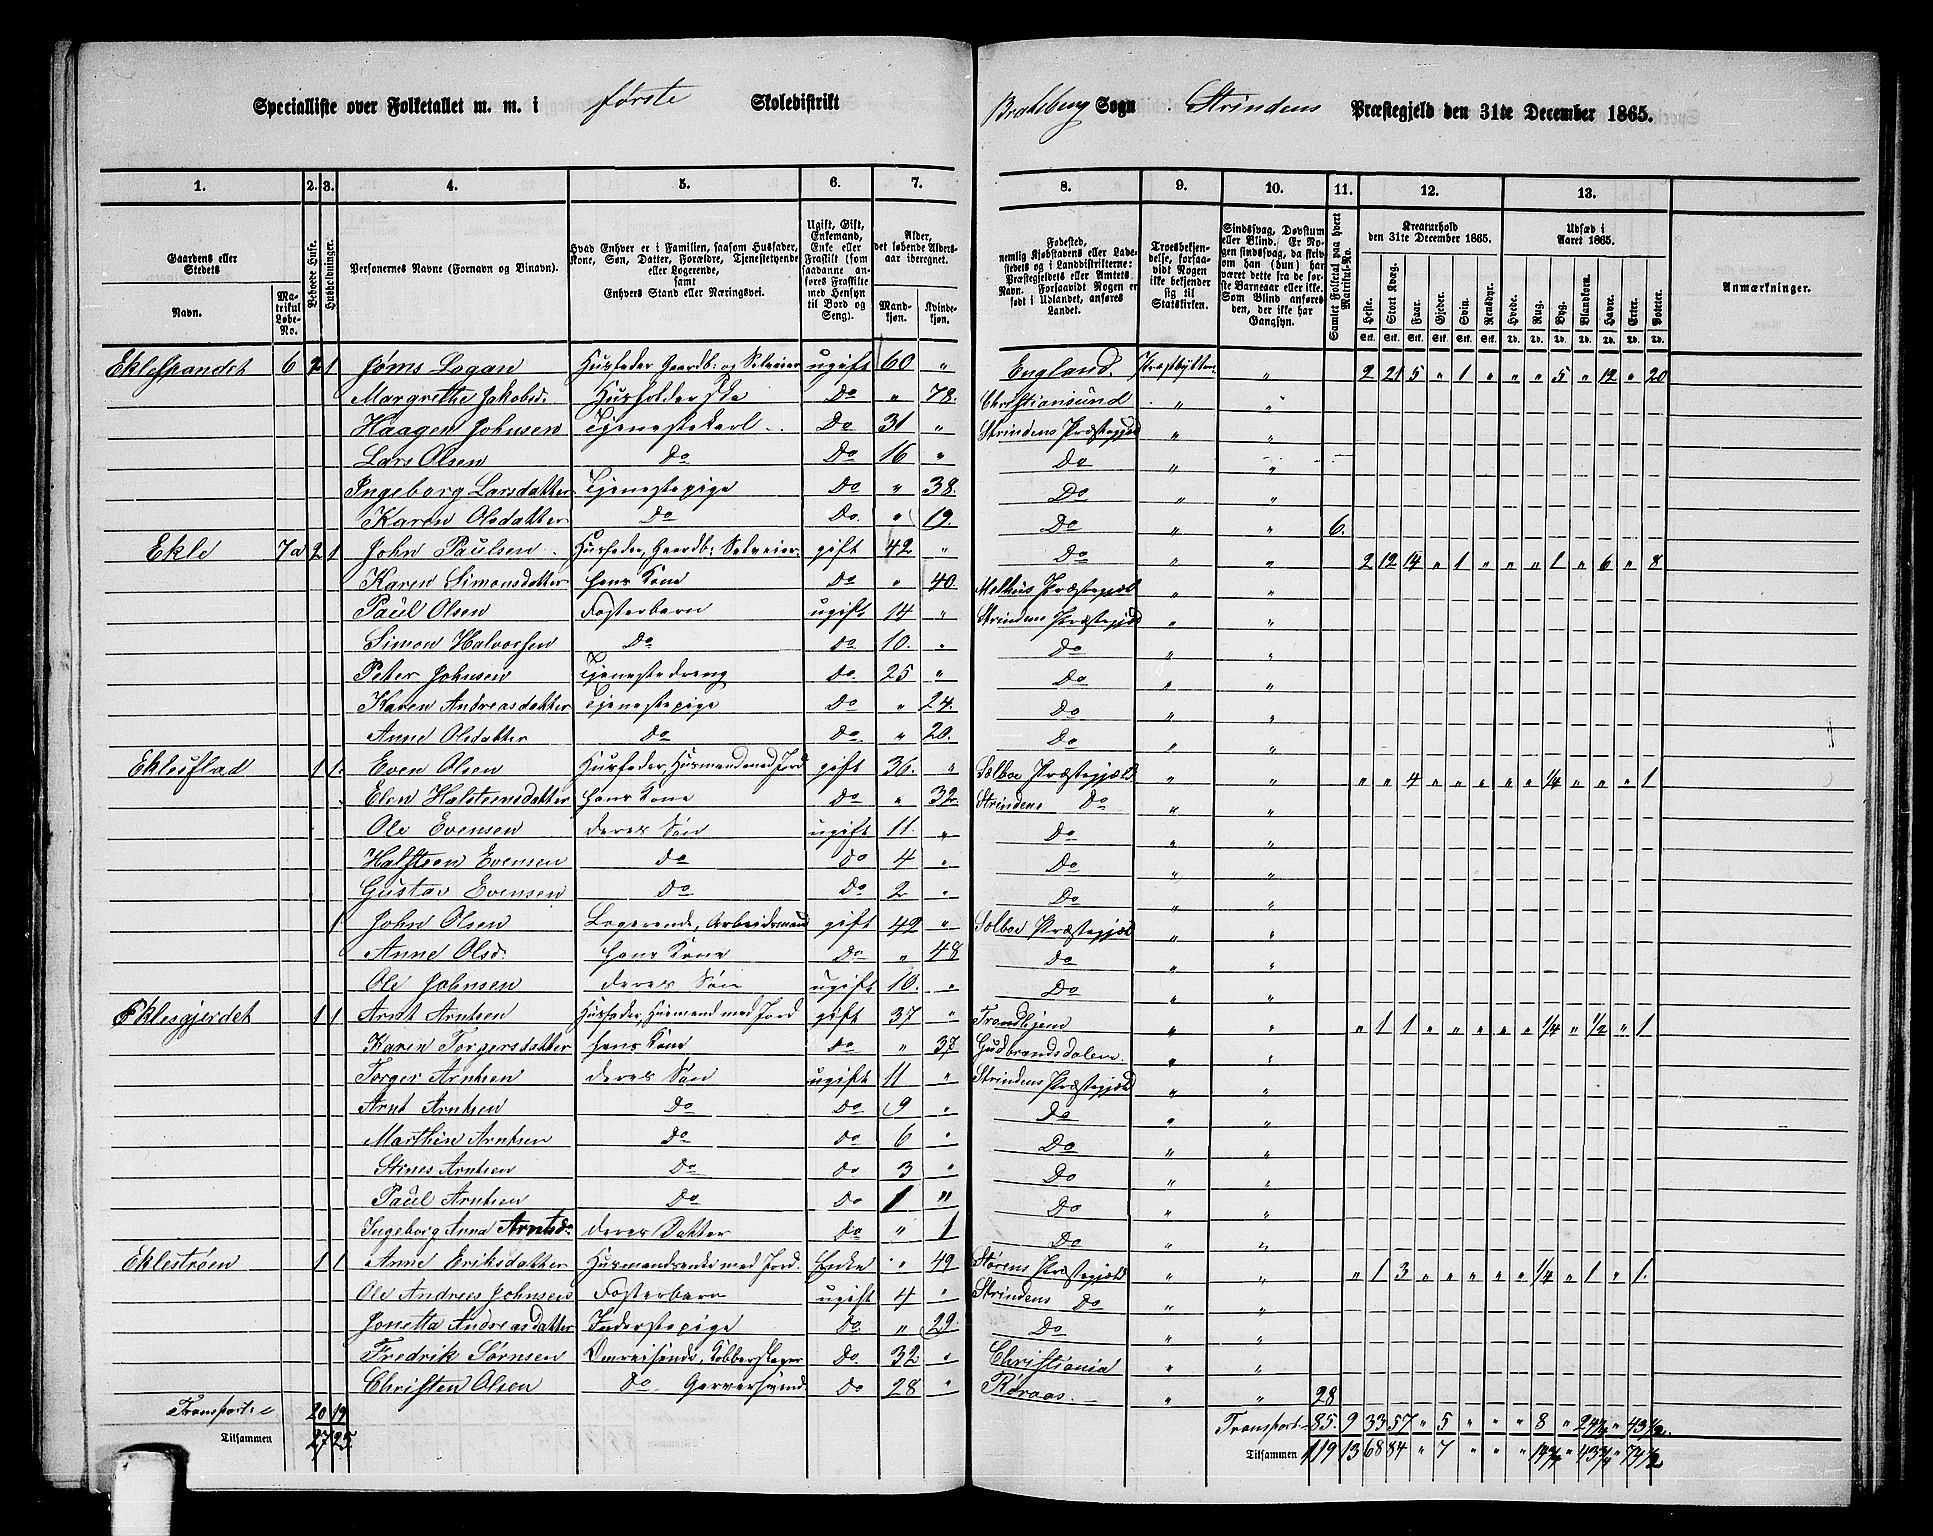 Specialliste over Folketallet m. m. i første Skoledistrikt
Bratsberg Sogn Strindens Præstegjeld den 31te December 1865.
1. 2. 3. 4. 5. 6. 7. 8. 9. 10. 11. 12. 13.
Gaardens eller Stedets Navn.
Matrikul Løbe-No.
Beboede Huse.
Husholdninger.
Personernes Navne (Fornavn og Binavn).
Hvad Enhver er i Familien, saasom Husfader, Kone, Søn, Datter, Forældre, Tjenestetyende eller Logerende, samt Enhvers Stand eller Næringsvei.
Ugift, Gift, Enkemand, Enke eller Fraskilt (som saadanne anføres Fraskilte med Hensyn til Bord og Seng).
Alder, det løbende Alders-aar iberegnet.
Mandkjøn. Kvindekjøn.
Fødested, nemlig Kjøbstadens eller Ladestedets og i Landdistrikterne: Præstegjeldets eller Amtets Navn. Forsaavidt Nogen er født i Udlandet, anføres Landet.
Troesbekjendelse, forsaavidt Nogen ikke bekjender sig til Statskirken.
Sindssvag, Døvstum eller Blind. Er Nogen sindssvag, da skriv om han (hun) har været dette fra de første Barneaar eller ikke. Som Blind anføres den, der ikke har Gangsyn.
Samlet Folketal paa hvert Matrikul-No.
Kreaturhold den 31te December 1865.
Heste. Stort Kvæg. Faar. Gjeder. Svin. Rensdyr.
Udsæd i Aaret 1865.
Hvede. Rug. Byg. Blandkorn. Havre. Erter. Poteter.
Anmærkninger.
Eklesspandet 6 2 1 Jøms Logan Husfader Gaardb: og Selveier ugift 60 " England. " 2 21 5 " 1 " " " 5 " 12 " 20
Margrethe Jakobsd. Husholderske Do " 78. Christiansund " "
Haagen Johnsen Tjenestekarl Do 31 " Strindens Præstegjeld " "
Lars Olsen Do Do 16 " Do " "
Ingeborg Larsdatter Tjenestepige Do " 38. Do " "
Karen Olsdatter Do Do. " 19. Do " " 6.
Ekle 7a 2 1 John Paulsen Husfader, Gaardb: Selveier gift 42 " Do " " 2 12 14 " 1 " " " 1 " 6 " 8
Karen Simonsdatter hans Kone Do " 40. Melhus Præstegjeld " "
Paul Olsen Fosterbarn ugift 14 " Strindens Præstegjeld " "
Simon Halvorsen Do do 10. " Do " "
Peter Johnsen Tjenestedreng do. 25 " Do " "
Karen Andreasdatter Tjenestepige Do " 24. Do " "
Anne Olsdatter Do Do. " 20. Do " "
Eklesflad 1 1. Even Olsen Husfader, Husmand med Jord gift 36. " Sælboe Præstegjeld " " " " 4 " " " " " 1/4 " " " 1
Elen Halsteensdatter hans Kone Do " 32 Strindens Do " "
Ole Evensen deres Søn ugift 11. " Do " "
Halsteen Evensen do do 4 " Do " "
Gustav Evensen Do Do 2 " Do " "
1 John Olsen Logerende, Arbeidsmand gift 42 " Sælboe Præstegjeld " "
Anne Olsd. hans Kone Do " 48 Do " "
Ole Johnsen deres Søn ugift 10. " Do " "
Eklesgjerdet 1 1 Arnt Arntsen Husfader, Husmand med Jord gift 37 " Trondhjem " " " 1 1 " " " " " 1/4 " 1/2 " 1
Karen Torgersdatter hans Kone do " 37 Gudbrandsdalen. " "
Torger Arntsen deres Søn ugift 11 " Strindens Præstegjeld " "
Arnt Arntsen Do Do 9 " Do " "
Marthin Arntsen Do do 6 " Do " "
Stines Arntsen Do do 3 " Do " "
Paul Arntsen Do Do 1 " Do " "
Ingeborg Anna Arntsd. deres Datter Do " 1 Do " "
Eklestrøen 1 1 Anne Eriksdatter Husmandsenke med Jord. Enke " 49 Størens Præstegjeld " " " 1 3 " " " " " 1/4 " 1 " 1.
Ole Andreas Johnsen Fosterbarn ugift 4 " Strindens Do " "
Jonetta Andreasdatter Inderstepige Do. " 29 Do " "
Fredrik Sørnsen Omreisende, Kobberslager Do. 32 " Christiania " "
Christen Olsen Do Garversvend Do 28 " Røraas. " " 28
Transport: 20 19 Transport: 85. 9 33 57 " 5 " " " 8 " 24 3/4 " 43 1/2.
Tilsammen 27 25. Tilsammen 119 13 68 84 " 7 " " " 14 3/4 " 43 3/4 " 73 1/2